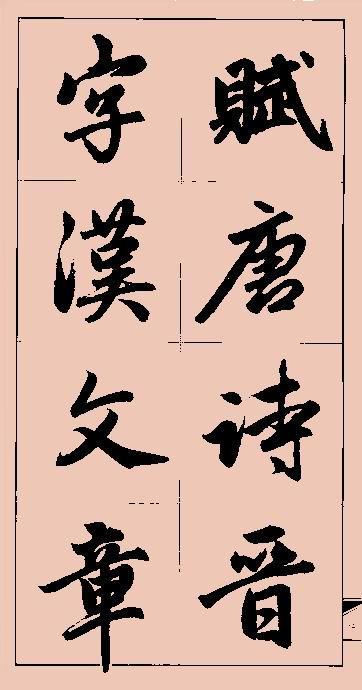 賦唐詩晋
字漢文章